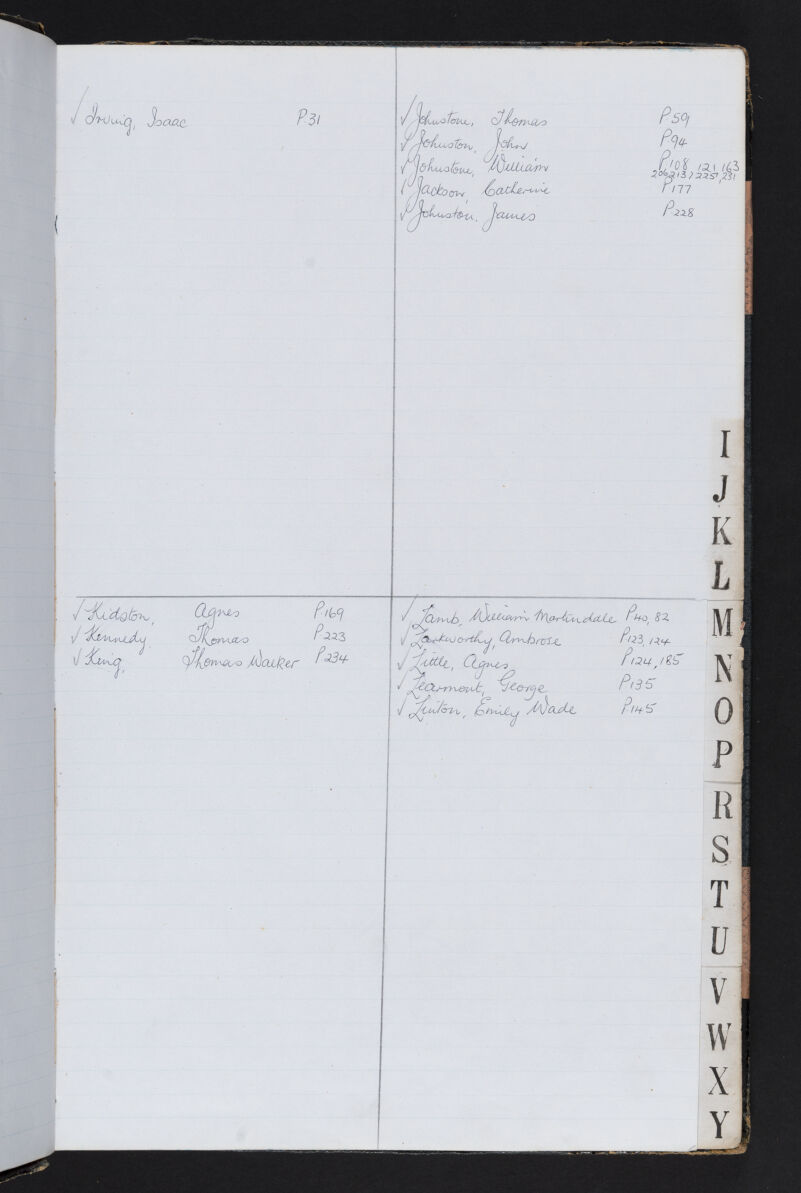 ✓ Irving, Isaac P31
✓ Johnstone, Thomas P59
✓ Johnston, John P94
✓ Johnstone, William P108, 121, 163
206, 213, 225, 231
✓ Jackson, Catherine P177
✓ Johnston, James P228
✓ Kidston, Agnes P169
✓ Kennedy, Thomas P223
✓ King, Thomas Walker P234
✓ Lamb, William Martindale P40, 82
✓ Larkworthy, Ambrose P123, 124
✓ Little, Agnes P124, 185
✓ Learmont, George P135
✓ Linton, Emily Wade P145
I
J
K
L
M
N
O
P
R
S
T
U
V
W
X
Y